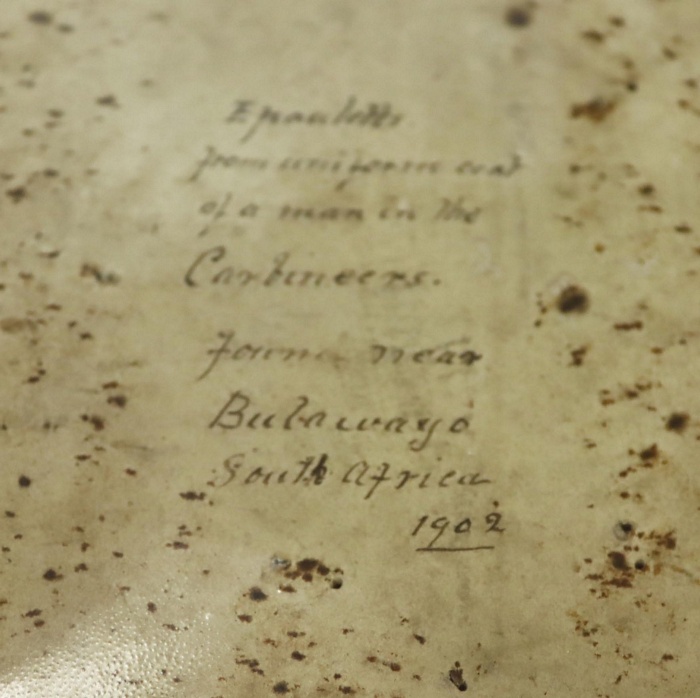 Epauletts
from uniform coat
of a man in the
Carbineers.
found near
Bulawayo
South Africa
1902